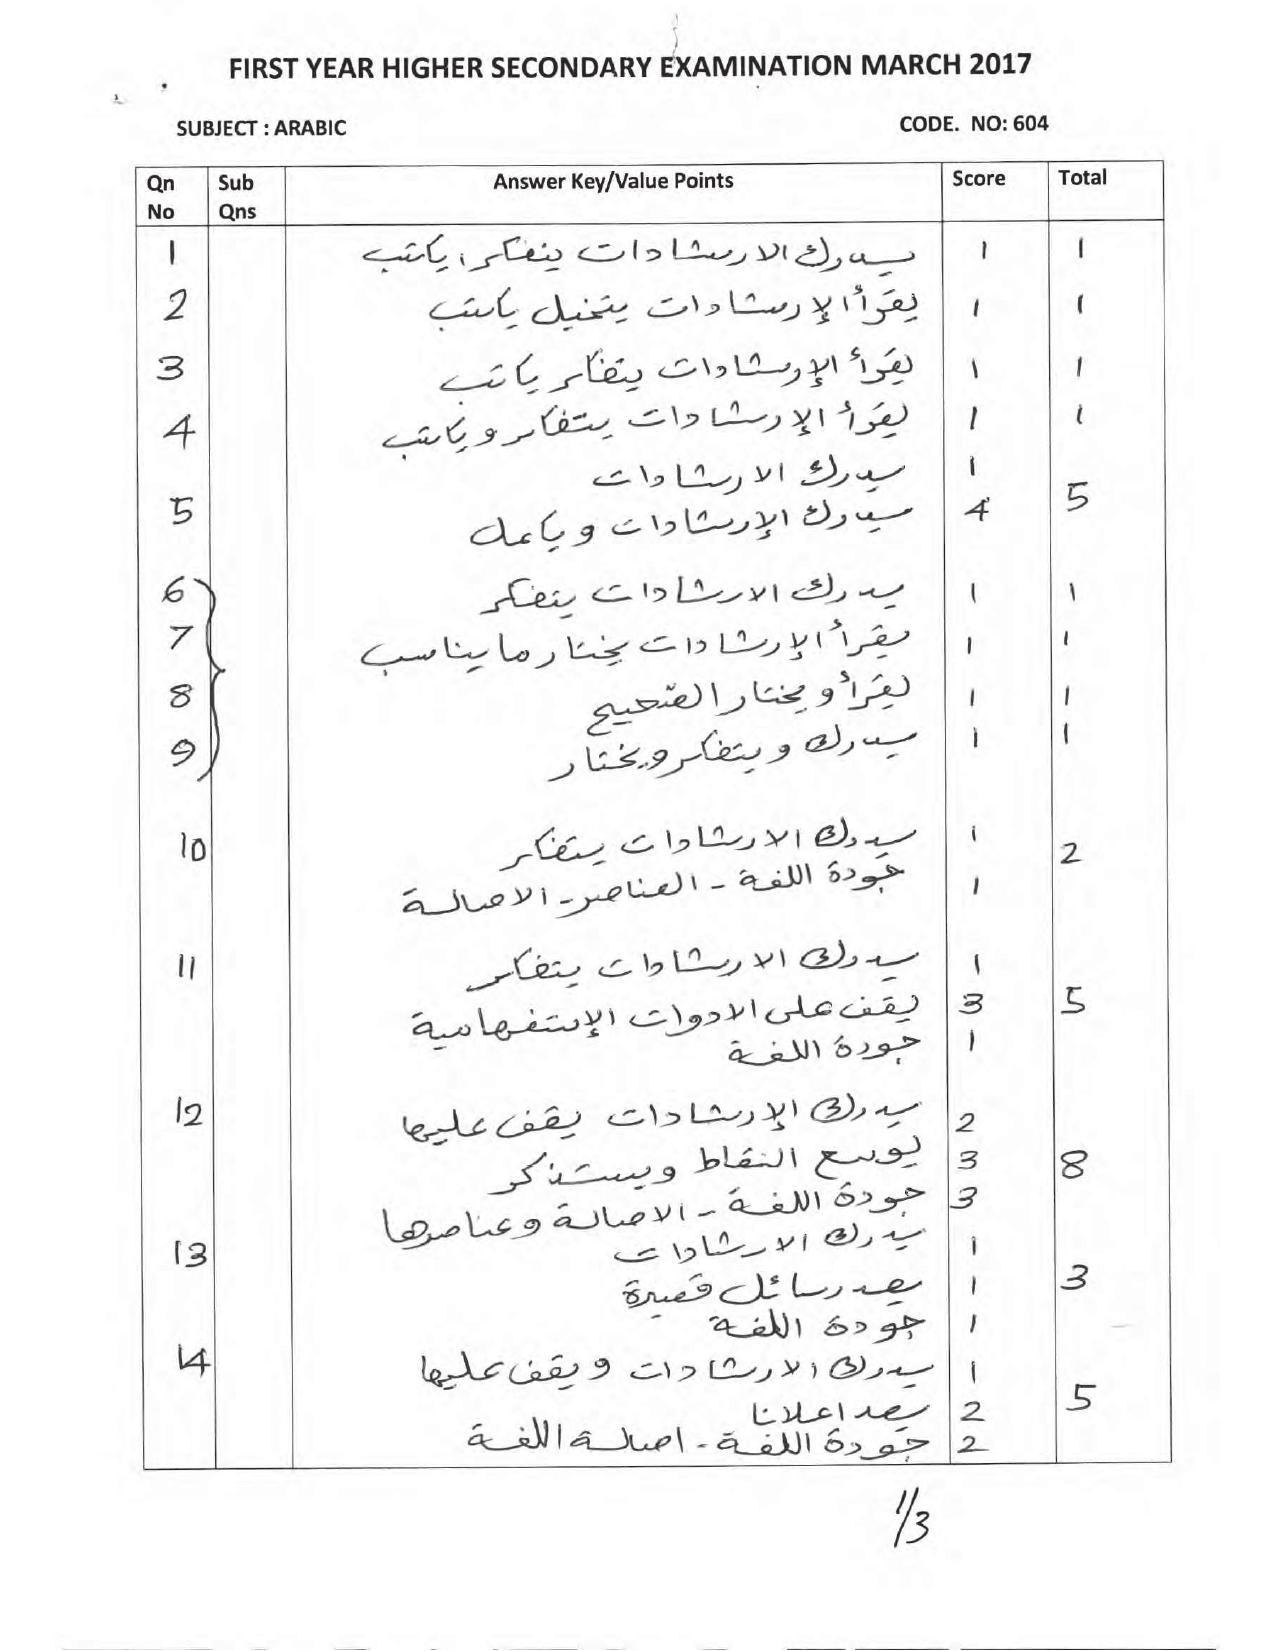 FIRST YEAR HIGHER SECONDARY EXAMINATION MARCH 2017
SUBJECT : ARABIC CODE. NO: 604
Qn No Sub Qns Answer Key/Value Points Score Total
1 يدرك الارشادات يتفكر، يكتب 1 1
2 يقرأ الإرشادات يتخيل يكتب 1 1
3 يقرأ الإرشادات يتفكر يكتب 1 1
4 يقرأ الإرشادات يتفكر ويكتب 1 1
يدرك الارشادات 1
5 يدرك الإرشادات و يكمل 4 5
6 يدرك الارشادات يتفكر 1 1
7 يقرأ الإرشادات يختار ما يناسب 1 1
8 يقرأ و يختار الصّحيح 1 1
9 يدرك و يتفكر ويختار 1 1
10 يدرك الارشادات يتفكر 1 2
جودة اللغة - العناصر - الاصالة 1
11 يدرك الارشادات يتفكر 1
يقف على الادوات الإستفهامية 3 5
جودة اللغة 1
12 يدرك الإرشادات يقف عليها 2
يوسع النقاط ويستذكر 3 8
جودة اللغة - الاصالة وعناصرها 3
13 يدرك الارشادات 1
يعد رسائل قصيرة 1 3
جودة اللغة 1
14 يدرك الارشادات ويقف عليها 1
يعد اعلانا 2 5
جودة اللغة - اصالة اللغة 2
1/3